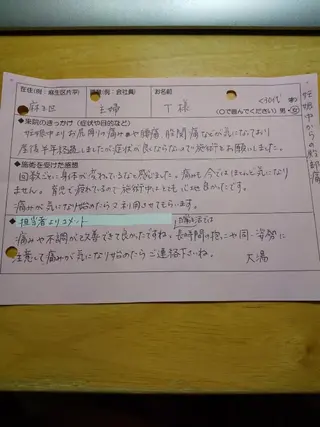 在住(例:麻生区片平) 職業(例:会社員) お名前
麻生区 主婦 T様 <30代> 女
(○で囲んでください) 男・女
妊娠中からの臀部痛
◆来院のきっかけ(症状や目的など)
妊娠中よりお尻周りの痛みや腰痛、股関節痛などが気になっており
産後半年経過しましたが症状の良くならないので施術をお願いしました。
◆施術を受けた感想
回数ごとに身体が変わっているなと感じました。痛みも今ではほとんど気になり
ません。育児で疲れているので施術中はとても心地も良かったです。
痛みが気になり始めたらまた利用させてもらいます。
◆担当者よりコメント
日常生活では
痛みや不調が改善できて良かったですね。長時間の抱っこや同一姿勢に
注意して痛みが気になり始めたらご連絡下さいね。 大湯